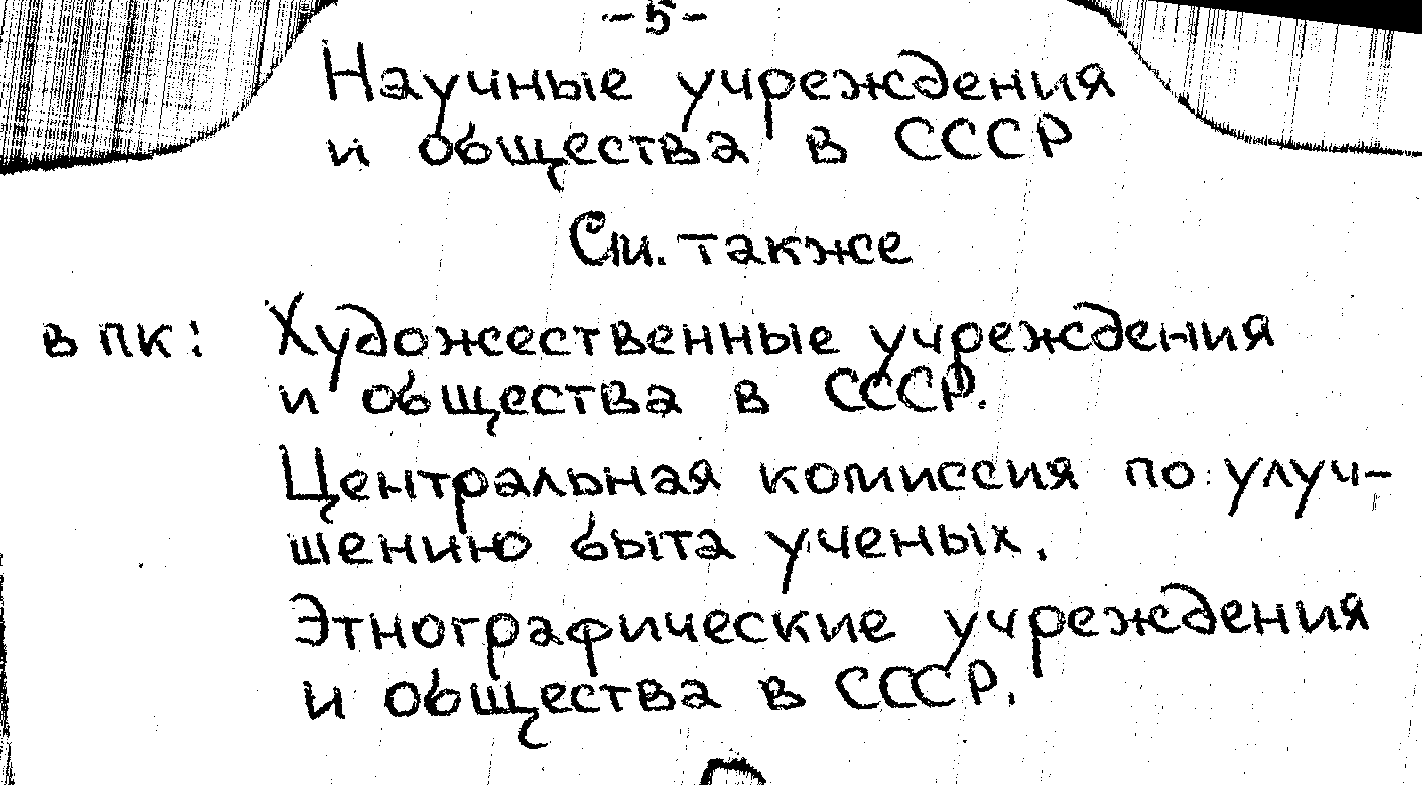 -5-
Научные учреждения
и общества в СССР
См. также
в пк: Художественные учреждения
и общества в СССР.
Центральная комиссия по улуч-
шению быта ученых.
Этнографические учреждения
и общества в СССР.